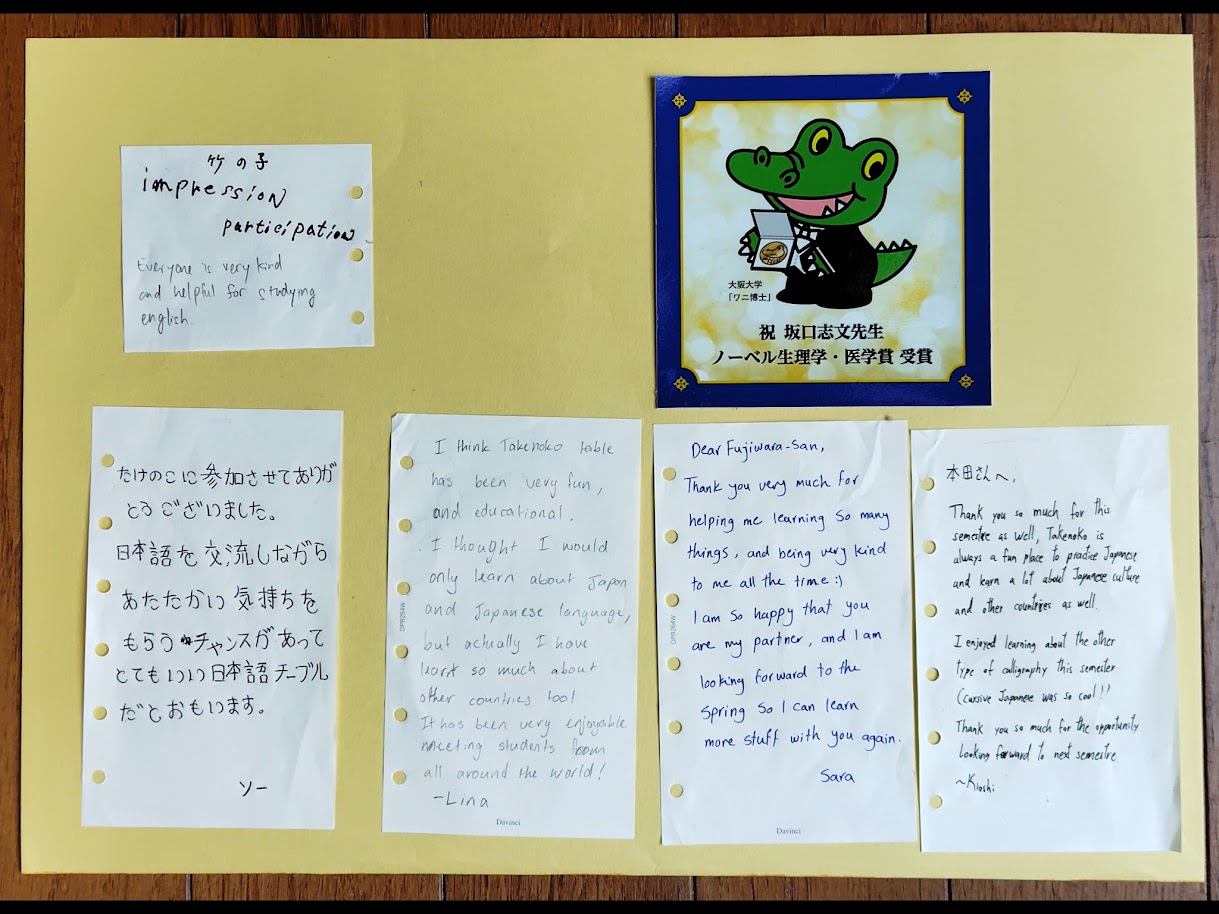 竹の子
impression
participation
Everyone is very kind
and helpful for studying
english.
大阪大学
「ワニ博士」
祝 坂口志文先生
ノーベル生理学・医学賞 受賞
たけのこに参加させてありが
とうございました。
日本語を交流しながら
あたたかい気持ちを
もらうチャンスがあって
とてもいい日本語テーブル
だとおもいます。
ソー
I think Takenoko table
has been very fun,
and educational.
I thought I would
only learn about Japan
and Japanese language,
but actually I have
learnt so much about
other countries too!
It has been very enjoyable
meeting students from
all around the world!
-Lina
DPR264W
Davinci
Dear Fujiwara-San,
Thank you very much for
helping me learning so many
things, and being very kind
to me all the time :)
I am so happy that you
are my partner, and I am
looking forward to the
Spring so I can learn
more stuff with you again.
Sara
DPR264W
Davinci
本田さんへ,
Thank you so much for this
semestre as well, Takenoko is
always a fun place to practice Japanese
and learn a lot about Japanese culture
and other countries as well.
I enjoyed learning about the other
type of calligraphy this semester
(cursive Japanese was so cool!!
Thank you so much for the opportunity
Looking forward to next semestre
~Kioshi